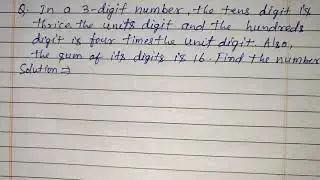 Q. In a 3-digit number, the tens digit is
thrice the units digit and the hundreds
digit is four times the unit digit. Also,
the sum of its digits is 16. Find the number
Solution ⇒